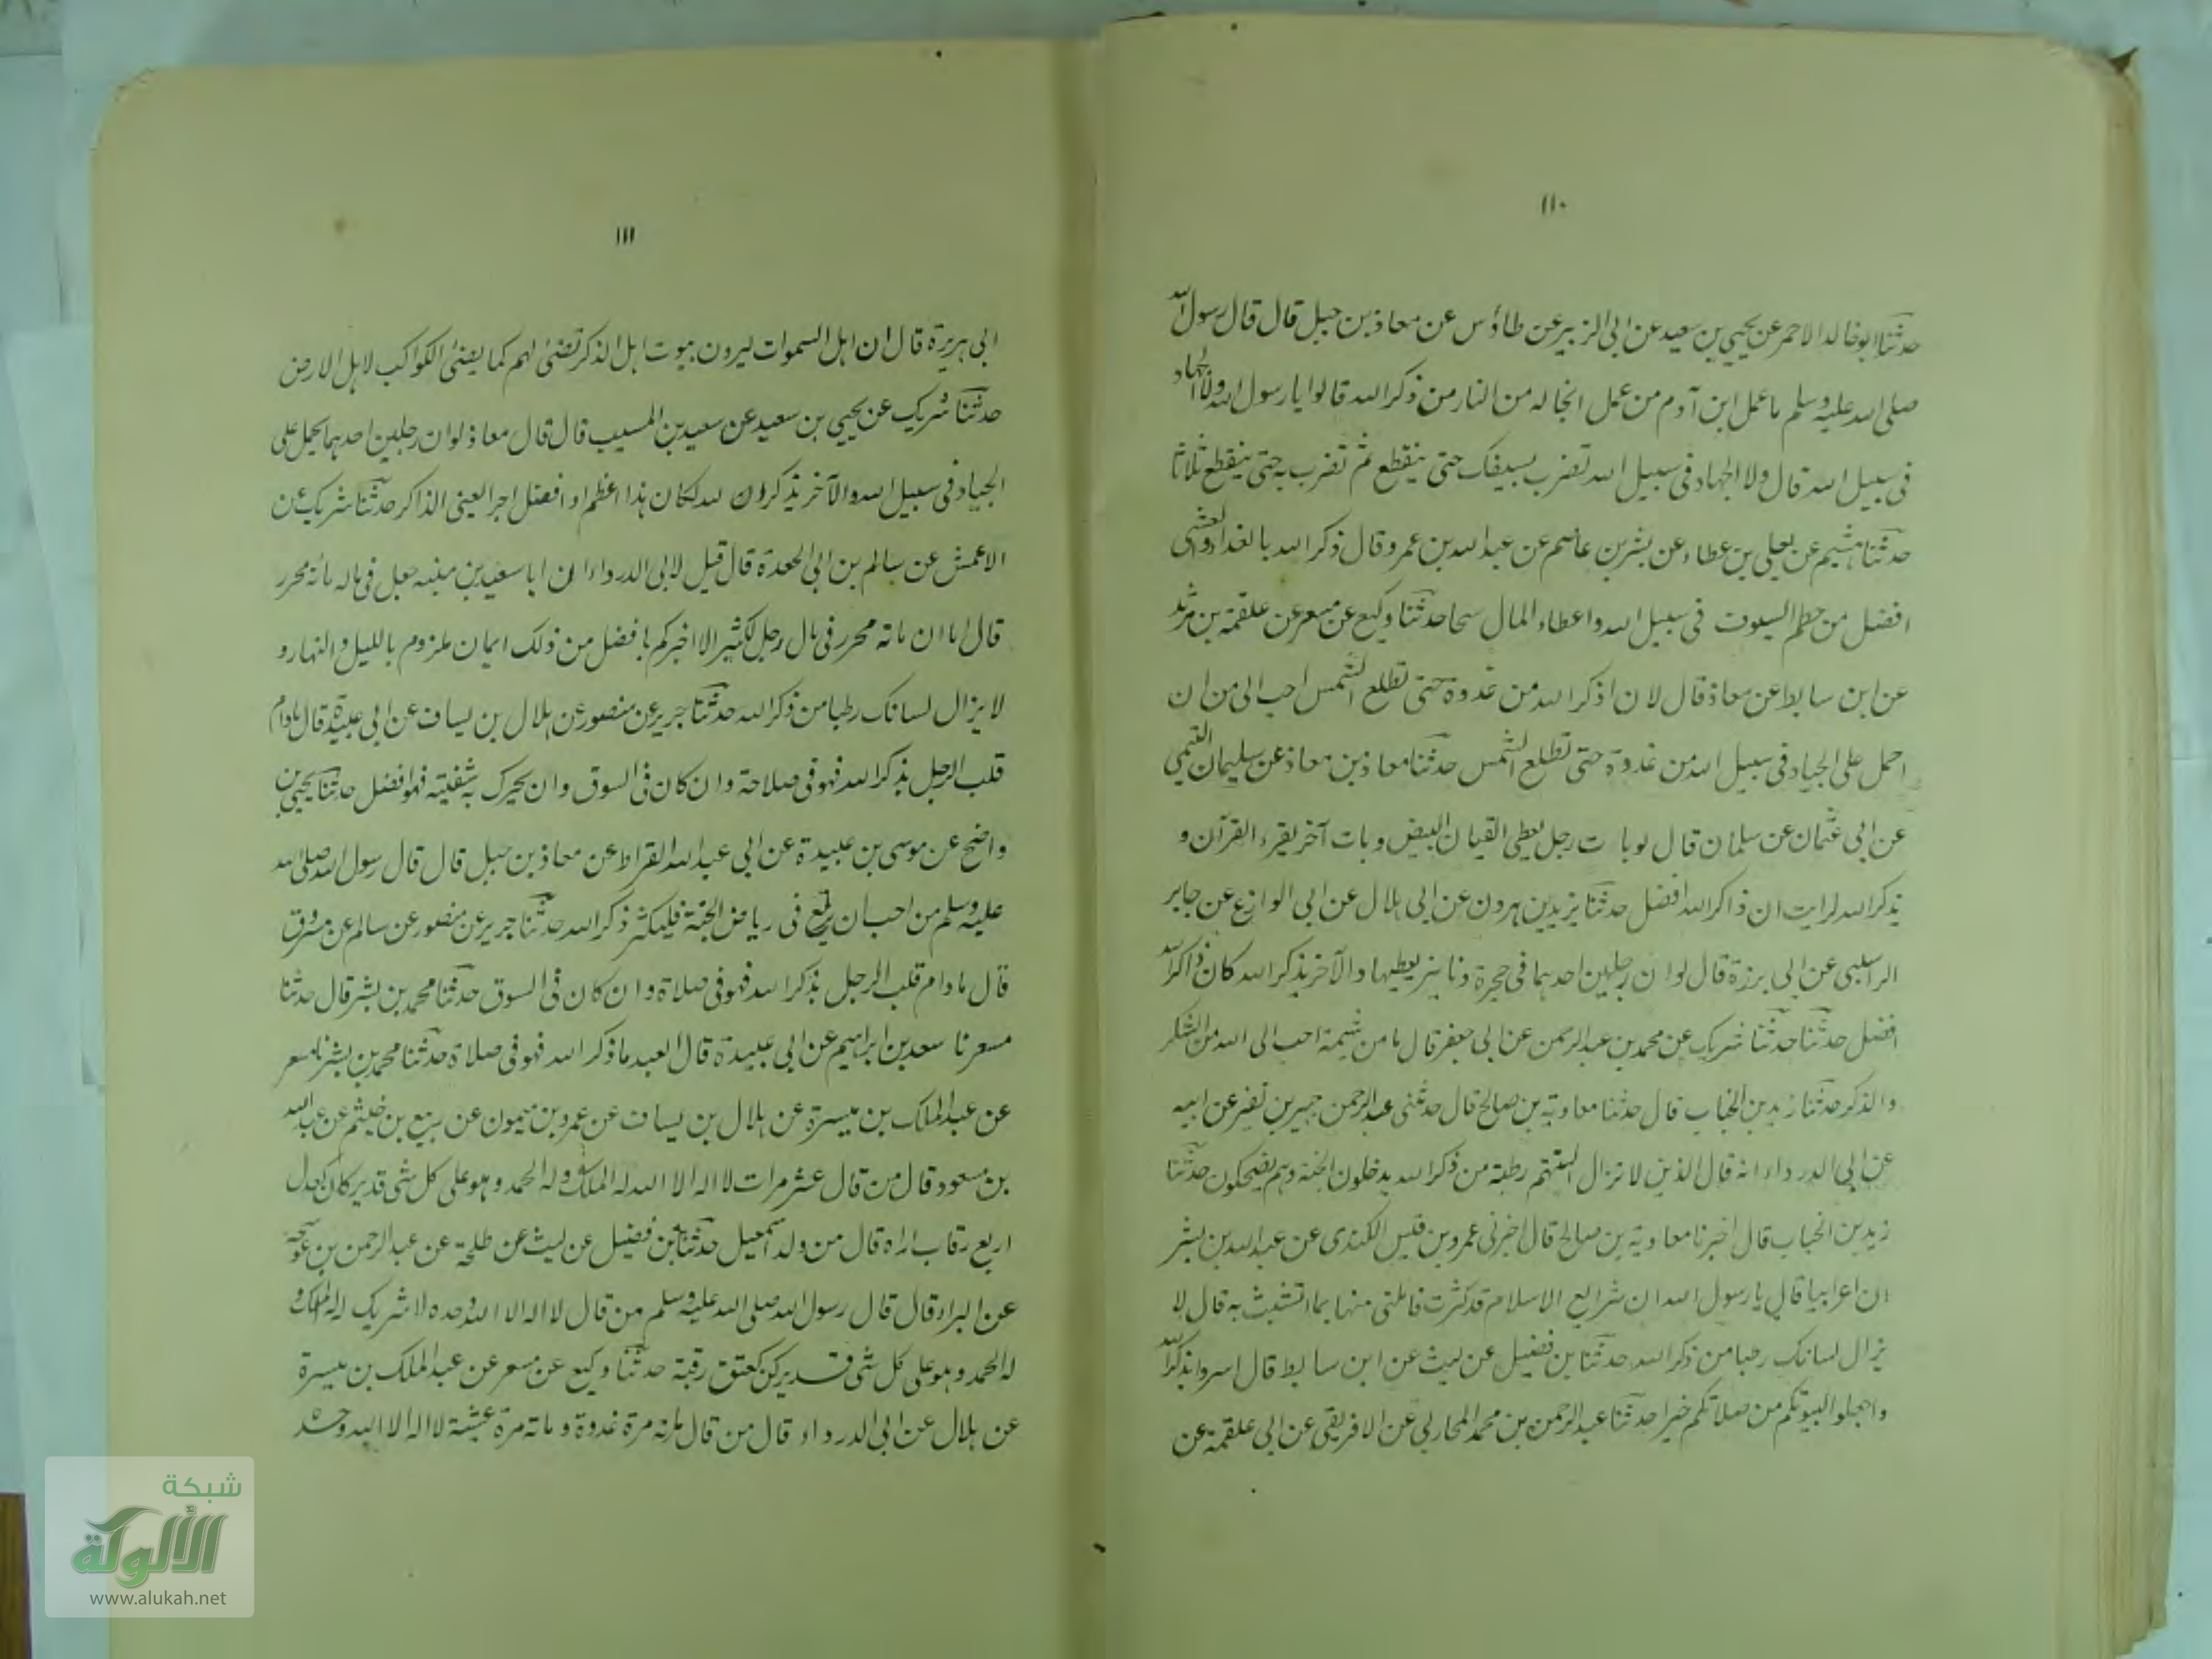 ١١٠
حدثنا ابو خالد الاحمر عن يحيى بن سعيد عن ابى الزبير عن طاؤس عن معاذ بن جبل قال قال رسول الله
صلى الله عليه وسلم ما عمل ابن آدم من عمل انجا له من النار من ذكر الله قالوا يا رسول الله ولا الجهاد
فى سبيل الله قال ولا الجهاد فى سبيل الله تضرب بسيفك حتى ينقطع ثم تضرب به حتى ينقطع ثلاثا
حدثنا هشيم عن يعلى بن عطاء عن بشر بن عاصم عن عبد الله بن عمرو قال ذكر الله بالغداة والعشى
افضل من حطم السيوف فى سبيل الله واعطاء المال سحا حدثنا وكيع عن مسعر عن علقمة بن مرثد
عن ابن سابط عن معاذ قال لان اذكر الله من غدوة حتى تطلع الشمس احب الى من ان
احمل على الجياد فى سبيل الله من غدوة حتى تطلع الشمس حدثنا معاذ بن معاذ عن سليمان التيمى
عن ابى عثمان عن سلمان قال لو بات رجل يعطى القيان البيض وبات آخر يقرء القرآن و
يذكر الله لرايت ان ذاكر الله افضل حدثنا يزيد بن هرون عن ابى هلال عن ابى الوازع عن جابر
الراسبى عن ابى برزة قال لو ان رجلين احدهما فى حجرة دنانير يعطيها والآخر يذكر الله كان ذاكر الله
افضل حدثنا حدثنا شريك عن محمد بن عبد الرحمن عن ابى جعفر قال ما من شيمة احب الى الله من الشكر
والذكر حدثنا زيد بن الحباب قال حدثنا معاوية بن صالح قال حدثنى عبد الرحمن جبير بن نفير عن ابيه
عن ابى الدرداء انه قال الذين لا تزال السنتهم رطبة من ذكر الله يدخلون الجنة وهم يضحكون حدثنا
زيد بن الحباب قال اخبرنا معاوية بن صالح قال اخبرنى عمرو بن قيس الكندى عن عبد الله بن بشر
ان اعرابيا قال يا رسول الله ان شرايع الاسلام قد كثرت فانبئنى منها بما اتشبث به قال لا
يزال لسانك رطبا من ذكر الله حدثنا بن فضيل عن ليث عن ابن سابط قال اسروا بذكر الله
واجعلوا لبيوتكم من صلاتكم خيرا حدثنا عبد الرحمن بن محمد المحاربى عن الافريقى عن ابى علقمة عن
١١١
ابى هريرة قال ان اهل السموات ليرون بيوت اهل الذكر تضئ لهم كما يضئ الكواكب لاهل الارض
حدثنا شريك عن يحيى بن سعيد عن سعيد بن المسيب قال قال معاذ لو ان رجلين احدهما يحمل على
الجياد فى سبيل الله والآخر يذكر الله لكان هذا اعظم او افضل اجرا يعنى الذاكر حدثنا شريك عن
الاعمش عن سالم بن ابى الجعدة قال قيل لابى الدرداء ان ابا سعيد بن منبه جعل فى ماله مائة محرر
قال اما ان مائة محرر فى مال رجل لكثير الا اخبركم بافضل من ذلك ايمان ملزوم بالليل والنهار و
لا يزال لسانك رطبا من ذكر الله حدثنا جرير عن منصور عن هلال بن يساف عن ابى عبيدة قال مادام
قلب الرجل يذكر الله فهو فى صلاحة وان كان فى السوق وان يحرك به شفتيه فهو افضل حدثنا يحيى بن
واضح عن موسى بن عبيدة عن ابى عبد الله القراط عن معاذ بن جبل قال قال رسول الله صلى الله
عليه وسلم من احب ان يرتع فى رياض الجنة فليكثر ذكر الله حدثنا جرير عن منصور عن سالم عن مسروق
قال ما دام قلب الرجل يذكر الله فهو فى صلاة وان كان فى السوق حدثنا محمد بن بشر قال حدثنا
مسعر نا سعد بن ابراهيم عن ابى عبيدة قال العبد ما ذكر الله فهو فى صلاة حدثنا محمد بن بشر نا مسعر
عن عبد الملك بن ميسرة عن هلال بن يساف عن عمرو بن ميمون عن ربيع بن خيثم عن عبد الله
بن مسعود قال من قال عشر مرات لا اله الا الله له الملك وله الحمد وهو على كل شى قدير كان كعدل
اربع رقاب اراه قال من ولد اسمعيل حدثنا بن فضيل عن ليث عن طلحة عن عبد الرحمن بن عوسجة
عن البراء قال قال رسول الله صلى الله عليه وسلم من قال لا اله الا الله وحده لا شريك له له الملك و
له الحمد وهو على كل شى قدير كن كعتق رقبة حدثنا وكيع عن مسعر عن عبد الملك بن ميسرة
عن هلال عن ابى الدرداء قال من قال مائة مرة غدوة ومائة مرة عشية لا اله الا الله وحده
شبكة
الألوكة
www.alukah.net